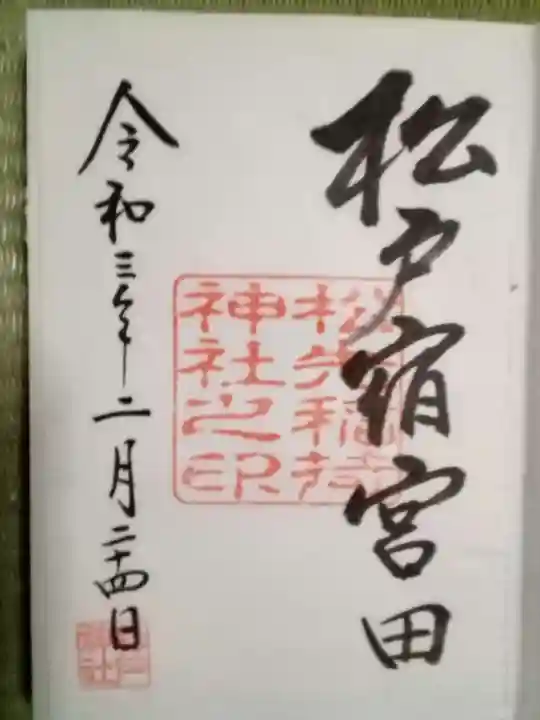 松戸宿宮田
松先稲荷
神社之印
令和三年二月二十四日